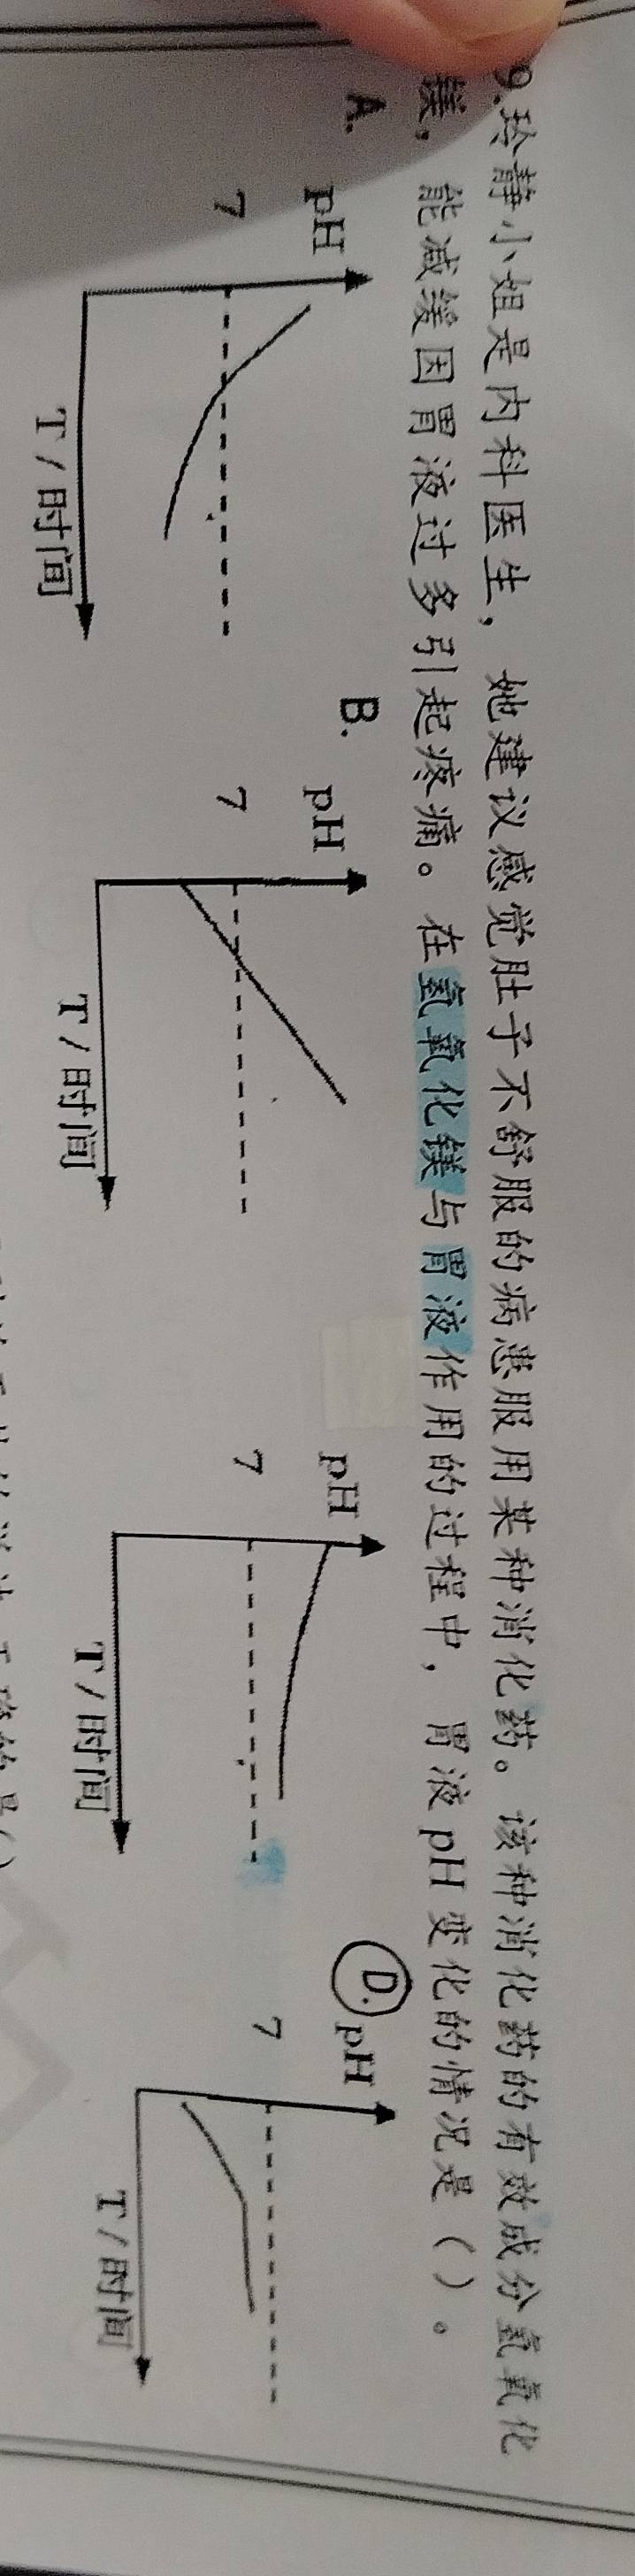 9.玲静小姐是内科医生，她建议感觉肚子不舒服的病患服用某种消化药。该种消化药的有效成分氢氧化
镁，能减缓因胃液过多引起疼痛。在氢氧化镁与胃液作用的过程中，胃液pH变化的情况是（）。
A.
pH
7
T/时间
B.
pH
7
T/时间
pH
7
T/时间
D.
pH
7
T/时间